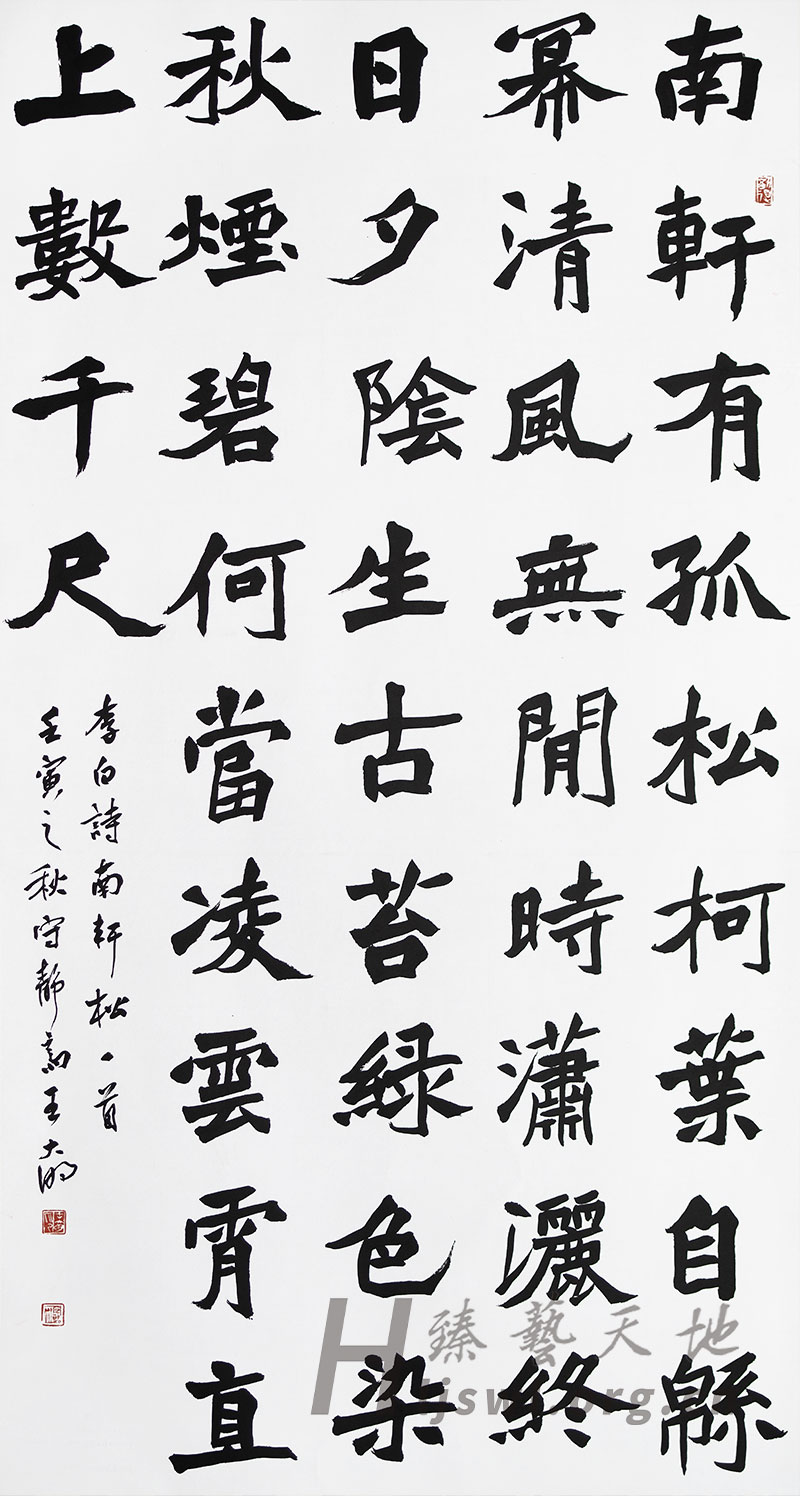 南軒有孤松柯葉自緜
冪清風無閒時瀟灑終
日夕陰生古苔綠色染
秋煙碧何當凌雲霄直
上數千尺
李白詩南軒松一首
壬寅之秋守靜斋王大
臻藝天地